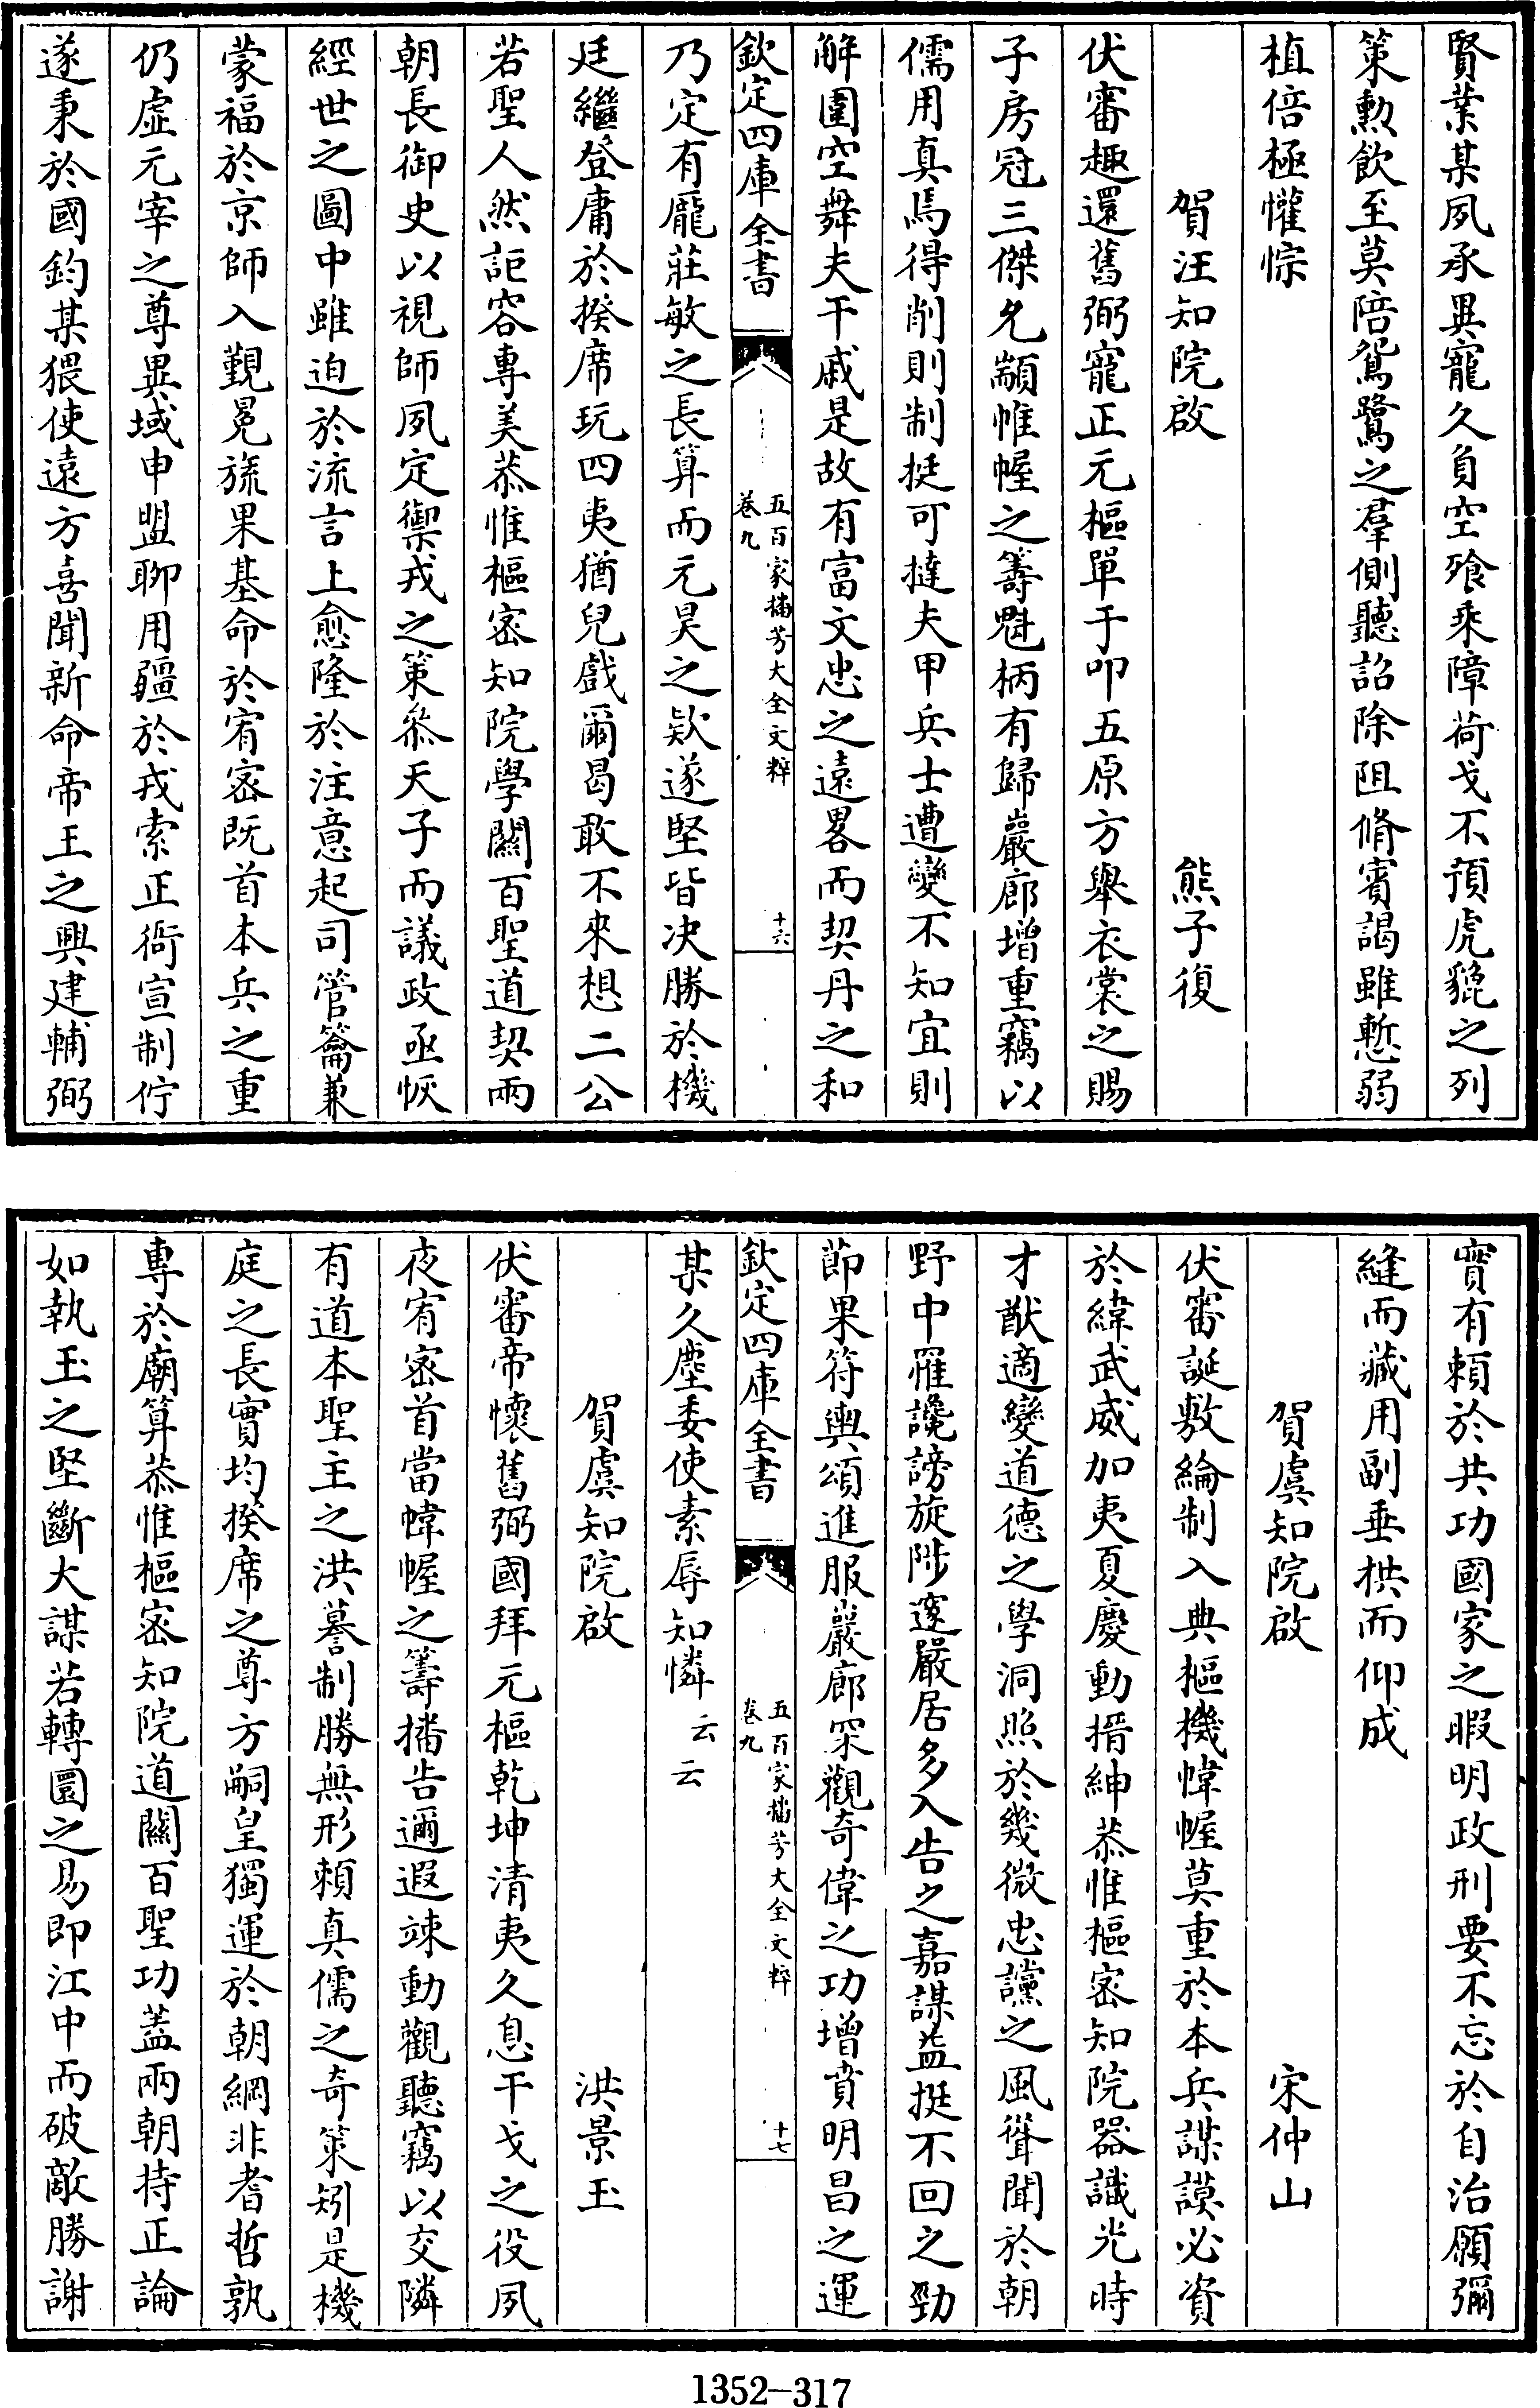 賢業某夙承異寵久負空飱乘障荷戈不預虎貔之列
策勲飲至莫陪鴛鷺之羣側聽詔除阻脩賓謁雖慙弱
植倍極懽悰
賀汪知院啟　熊子復
伏審趣還舊弼寵正元樞單于叩五原方舉衣裳之賜
子房冠三傑允顓帷幄之籌魁柄有歸巖廊增重竊以
儒用真焉得削則制挺可撻夫甲兵士遭變不知宜則
解圍空舞夫干戚是故有富文忠之遠畧而契丹之和
欽定四庫全書
五百家播芳大全文粹
卷九
十六
乃定有龐莊敏之長算而元昊之欵遂堅皆决勝於機
廷繼登庸於揆席玩四夷猶兒戲爾曷敢不來想二公
若聖人然詎容專美恭惟樞密知院學闗百聖道契兩
朝長御史以視師夙定禦戎之策叅天子而議政亟恢
經世之圖中雖迫於流言上愈隆於注意起司管籥兼
蒙福於京師入覲冕旒果基命於宥密既首本兵之重
仍虛元宰之尊異域申盟聊用疆於戎索正衙宣制佇
遂秉於國鈞某猥使遠方喜聞新命帝王之興建輔弼
實有頼於共功國家之暇明政刑要不忘於自治願彌
縫而藏用副垂拱而仰成
賀虞知院啟　宋仲山
伏審誕敷綸制入典樞機幃幄莫重於本兵謀謨必資
於緯武威加夷夏慶動搢紳恭惟樞密知院器識光時
才猷適變道德之學洞照於幾微忠讜之風聳聞於朝
野中罹讒謗旋陟邃嚴居多入告之嘉謀益挺不回之勁
節果符輿頌進服巖廊罙觀奇偉之功增賁明昌之運
欽定四庫全書
五百家播芳大全文粹
卷九
十七
某久塵委使素辱知憐云云
賀虞知院啟　洪景玉
伏審帝懷舊弼國拜元樞乾坤清夷久息干戈之役夙
夜宥密首當幃幄之籌播告邇遐竦動觀聽竊以交隣
有道本聖主之洪謩制勝無形頼真儒之奇策矧是機
庭之長實均揆席之尊方嗣皇獨運於朝綱非耆哲孰
專於廟算恭惟樞密知院道闗百聖功蓋兩朝持正論
如執玉之堅斷大謀若轉圜之易即江中而破敵勝謝
1352-317